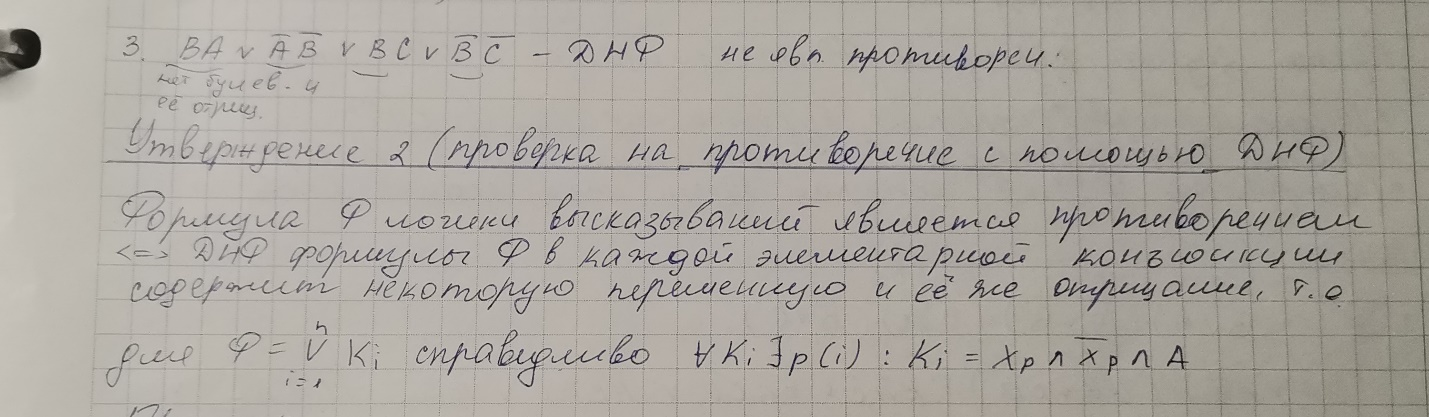 3. BA ∨ A̅ B̅ ∨ BC ∨ B̅ C̅ – ДНФ не явл. противореч.
нет булев. и
её отриц.
Утверждение 2 (проверка на противоречие с помощью ДНФ)
Формула Ф логики высказываний является противоречием
<=> ДНФ формулы Ф в каждой элементарной конъюнкции
содержит некоторую переменную и её же отрицание, т.е.
n
для Ф = ∨ Ki справедливо ∀ Ki ∃ p(i) : Ki = xp ∧ x̅p ∧ A
i=1